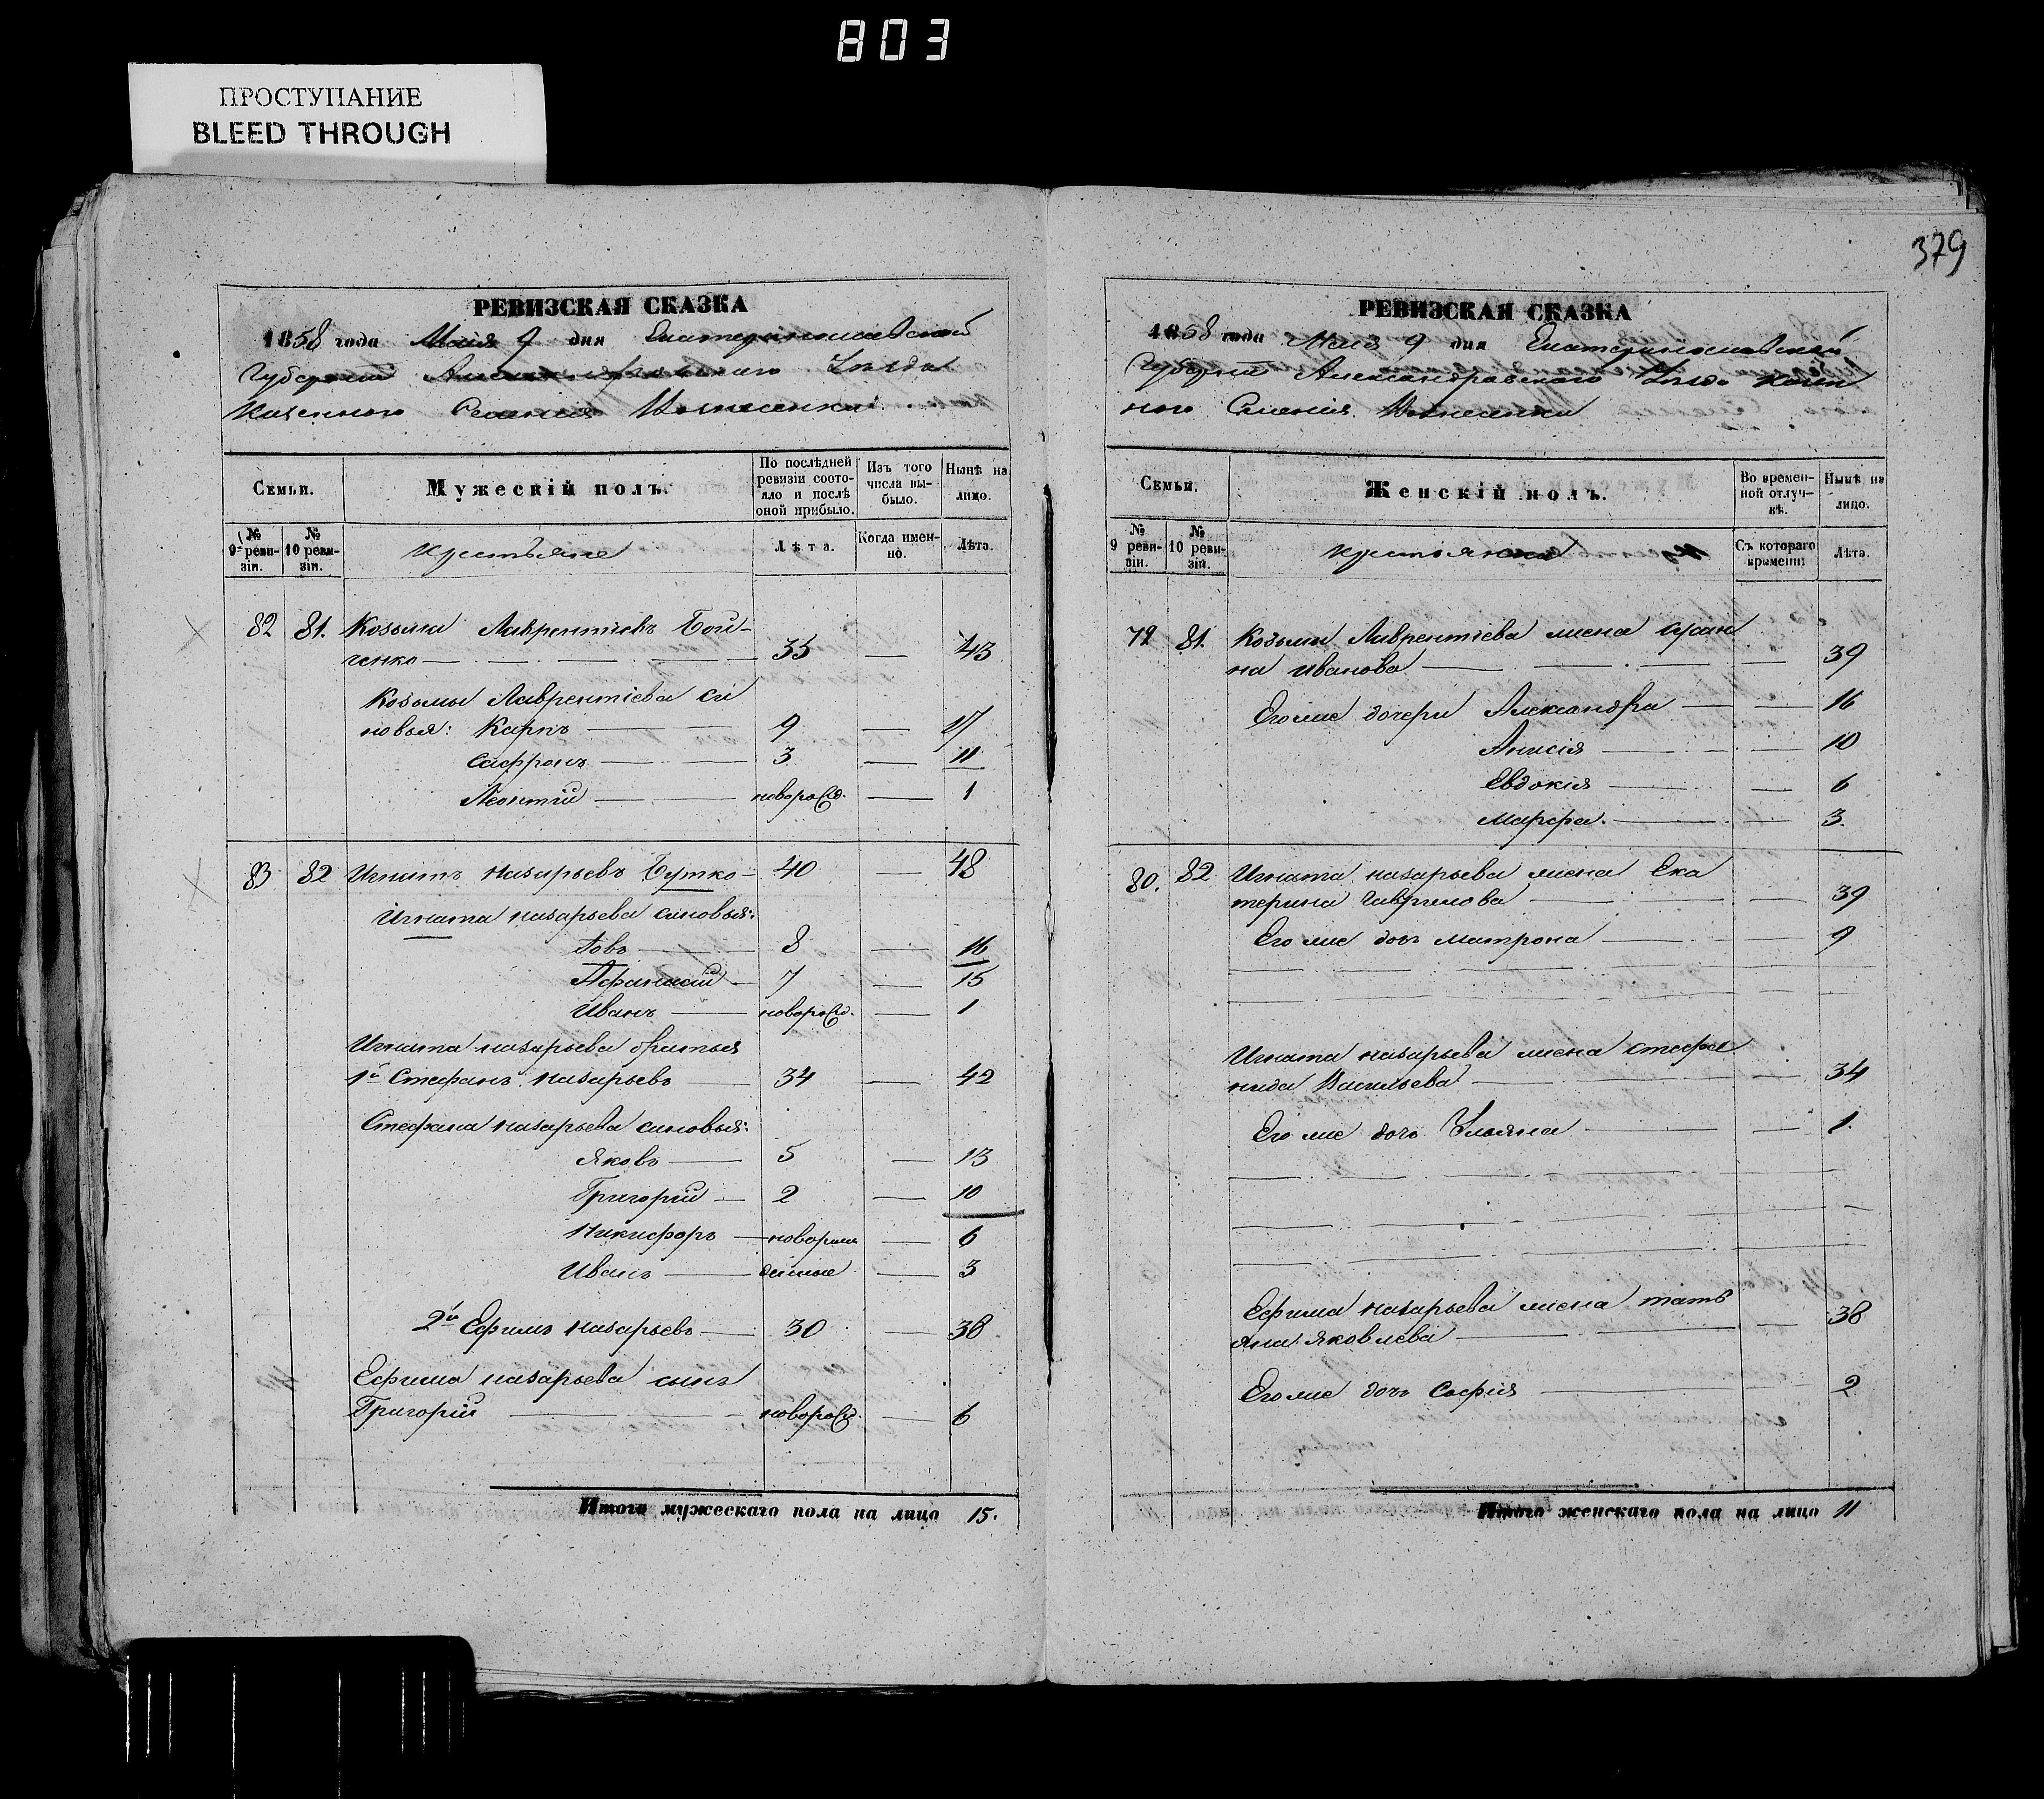 803
ПРОСТУПАНИЕ
BLEED THROUGH
РЕВИЗСКАЯ СКАЗКА
1858 года Маія 9 дня Екатеринославской
Губерніи Александровскаго Уѣзда
Казенного Селенія Вознесенки
Семьи.
Мужескій полъ.
По послѣдней ревизіи состояло и послѣ оной прибыло.
Изъ того числа выбыло.
Нынѣ на лицо.
№ 9 ревизіи.
№ 10 ревизіи.
Крестьяне
Лѣта.
Когда именно.
Лѣта.
82 81. Козьма Лаврентіевъ Бой-
ченко 35 43
Козьмы Лаврентіева сы
новья: Карпъ 9 17
Сафронъ 3 11
Леонтій новорожд. 1
83 82 Игнатъ Назарьевъ Бутко 40 48
Игната Назарьева сыновья:
Іовъ 8 16
Афанасій 7 15
Иванъ новорожд. 1
Игната Назарьева братья
1й Стефанъ Назарьевъ 34 42
Стефана Назарьева сыновья:
Яковъ 5 13
Григорій 2 10
Никифоръ новорож 6
Иванъ денные 3
2й Ефимъ Назарьевъ 30 38
Ефима Назарьева сынъ
Григорій новорожд. 6
Итого мужескаго пола на лицо 15.
379
РЕВИЗСКАЯ СКАЗКА
1858 года Маія 9 дня Екатеринославской
Губерніи Александровскаго Уѣзда Казен
ного Селенія Вознесенки
Семьи.
Женскій полъ.
Во временной отлучкѣ.
Нынѣ на лицо.
№ 9 ревизіи.
№ 10 ревизіи.
Крестьянки
Съ котораго времени
Лѣта.
79 81. Козьмы Лаврентіева жена Сусан
на Иванова 39
Его же дочери Александра 16
Анисія 10
Евдокія 6
Марфа 3.
80. 82 Игната Назарьева жена Ека
терина Гаврилова 39
Его же дочь Матрона 9
Игната Назарьева жена Стефа
нида Васильева 34
Его же дочь Ульяна 1.
Ефима Назарьева жена Тать
яна Яковлева 38
Его же дочь Софія 2
Итого женскаго пола на лицо 11